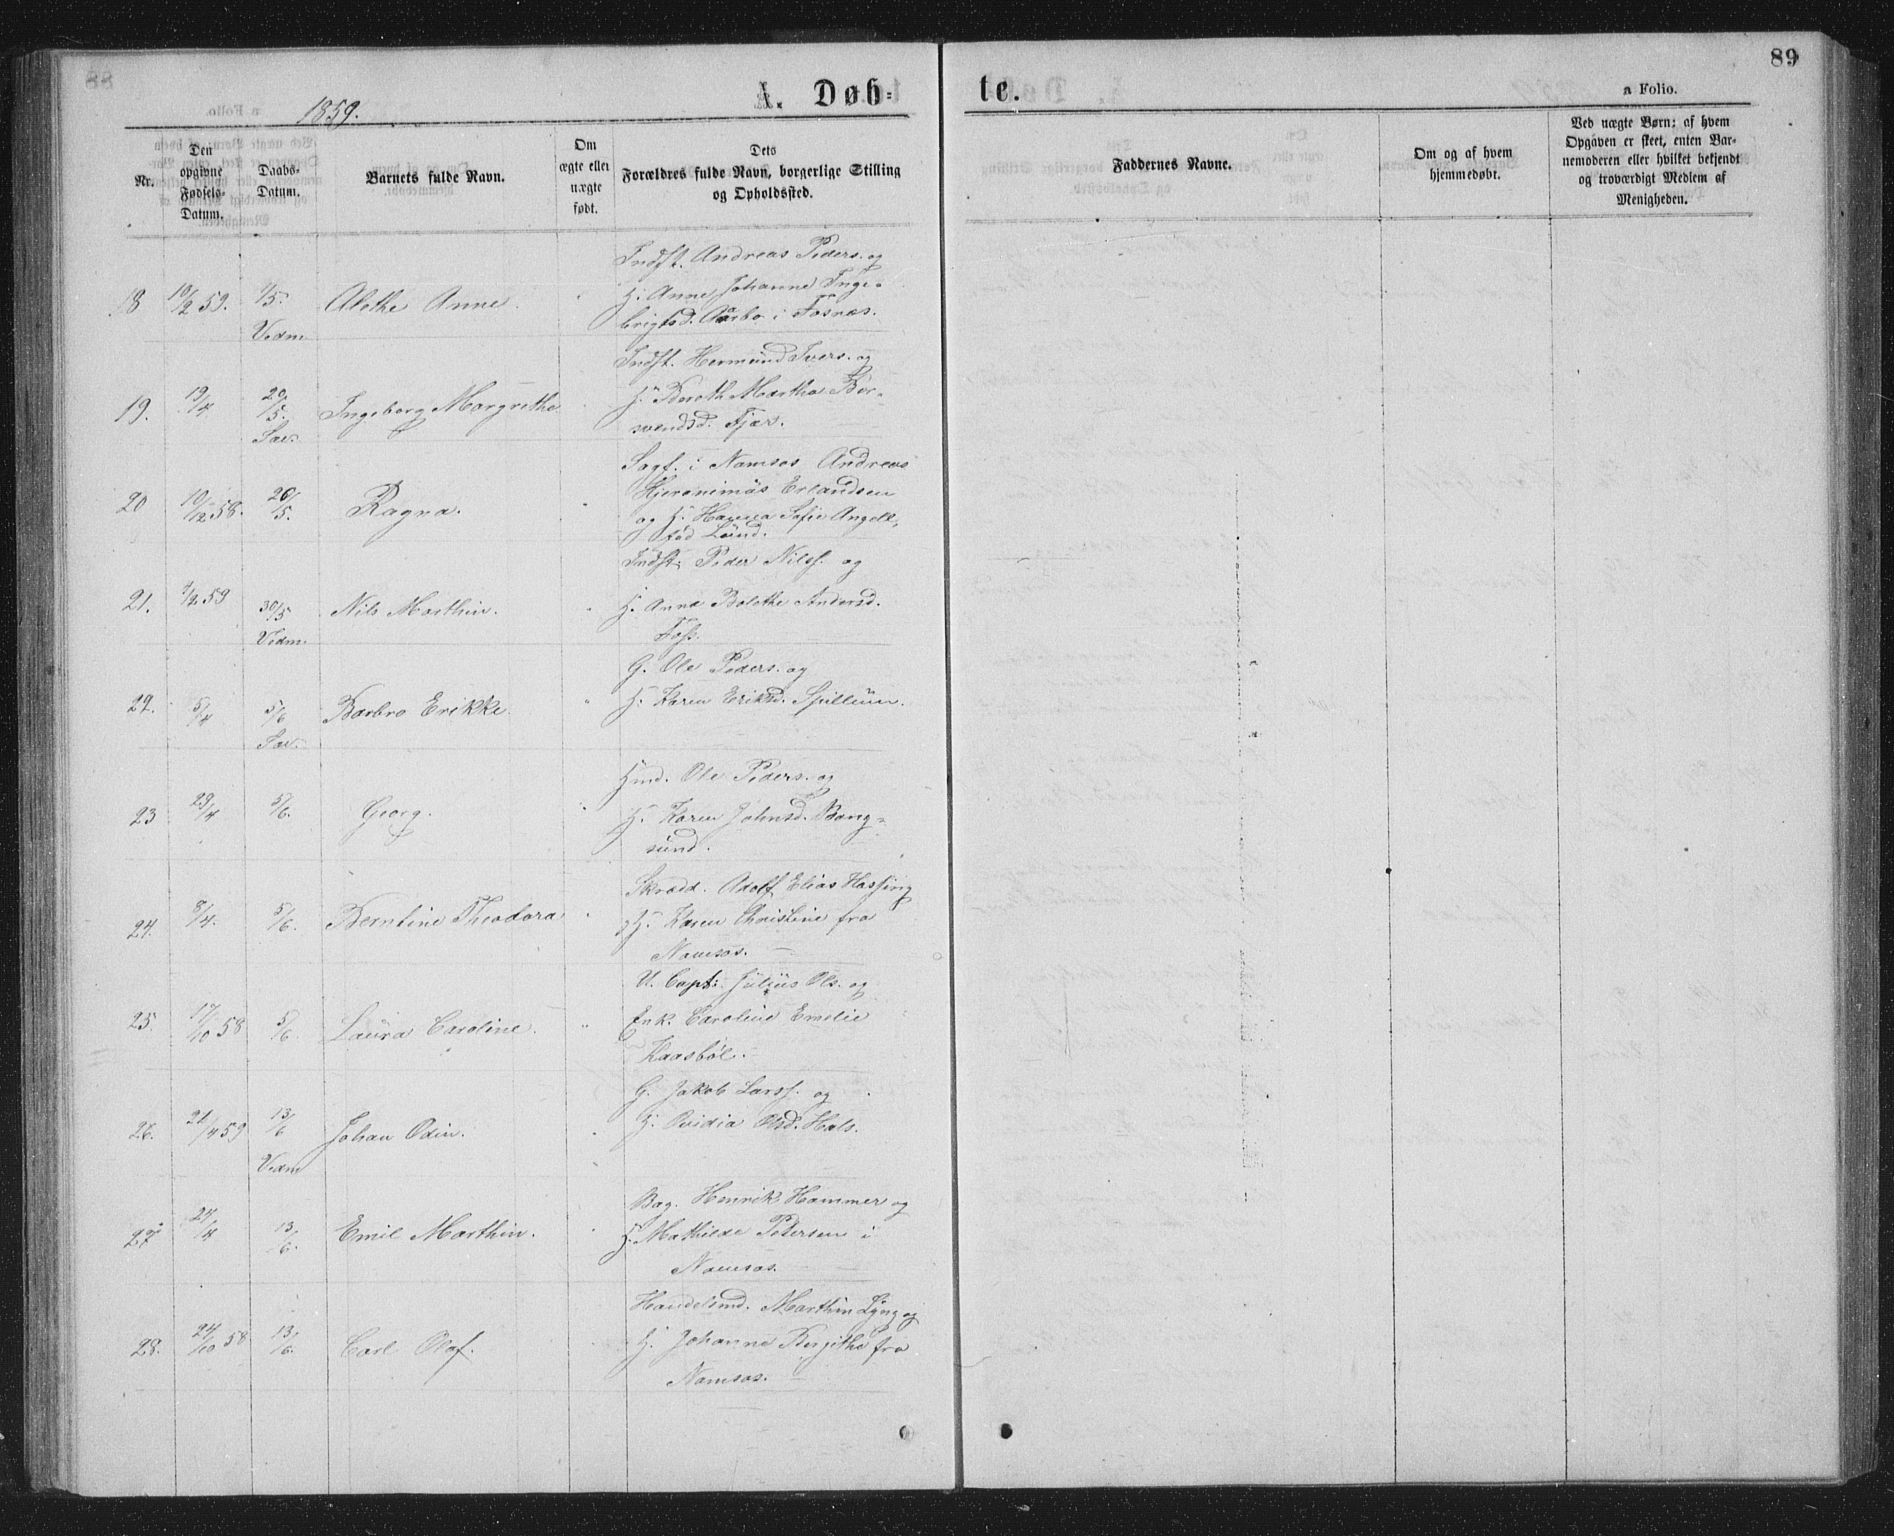 89
A. Døb-
te.
a Folio.
1859.
Nr.
Den
opgivne
Fødsels-
Datum.
Daabs-
Datum.
Barnets fulde Navn.
Om
ægte eller
uægte
født.
Dets
Forældres fulde Navn, borgerlige Stilling
og Opholdssted.
Faddernes Navne.
Om og af hvem
hjemmedøbt.
Ved uægte Børn; af hvem
Opgaven er skeet, enten Bar-
nemoderen eller hvilket bekjendt
og troværdigt Medlem af
Menigheden.
Indst. Andreas Peders. og
18 10/2 59. 1/5. Alethe Anne. H. Anne Johanne Inge-
Vedm. brigtsd. Aarbo i Fosnæs.
Indst. Hermund Ivers. og
19. 13/4 20/5. Ingeborg Margrethe H. Beroth Martha Ber-
Sæv. svendsd. Fjær.
Sagf. i Namsos Andreas
20 10/12 58. 20/5. Ragna. Hjeronimus Erlandsen
og H. Hanna Sofie Angell,
fød Lund.
Indst. Peder Nilss. og
21. 1/2 59 30/5 Nils Marthin. H. Anna Bolethe Andersd.
Vedm. Foss.
G. Ole Peders. og
22. 5/4 5/6 Barbro Erikke. H. Karen Eriksd. Spillum.
Sæv.
Hmd. Ole Peders. og
23 23/4 5/6. Georg. H. Karen Johnsd. Bang-
sund.
Skrædd. Adolf Elias Hassing
24. 8/4. 5/6. Berntine Theodora H. Karen Christine fra
Namsos.
U. Capt: Julius Ols. og
25. 17/10 58 5/6. Laura Caroline. Enk. Caroline Emelie
Kaasbøl.
G. Jakob Larss. og
26. 21/4 59 13/6 Johan Odin. H. Ovidia Olsd. Hals.
Vedm
Bag. Henrik Hammer og
27 24/4 13/6. Emil Marthin. H. Mathilde Petersen i
Namsos.
Handelsmd. Marthin Lyng og
28. 24/10 58 13/6. Carl Olaf. H. Johanne Bergithe fra
Namsos.